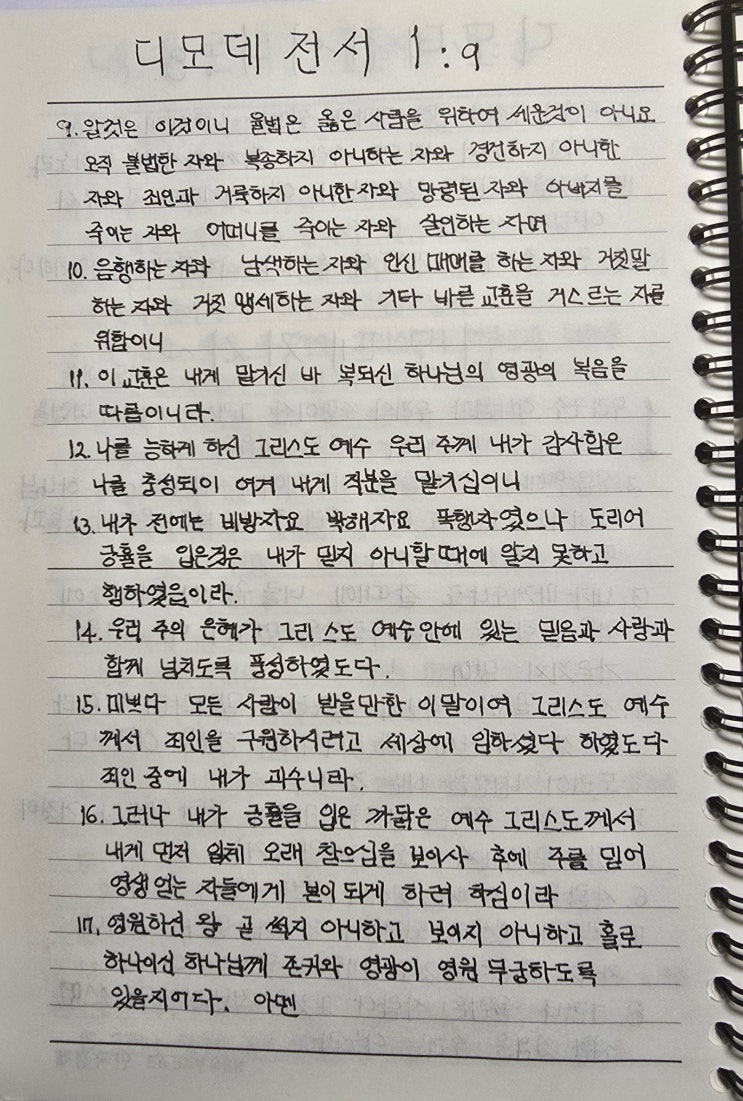 디모데전서 1:9
9. 알것은 이것이니 율법은 옳은 사람을 위하여 세운것이 아니요
오직 불법한 자와 복종하지 아니하는 자와 경건하지 아니한
자와 죄인과 거룩하지 아니한 자와 망령된 자와 아버지를
죽이는 자와 어머니를 죽이는 자와 살인하는 자며
10. 음행하는 자와 남색하는 자와 인신 매매를 하는 자와 거짓말
하는 자와 거짓 맹세하는 자와 기타 바른 교훈을 거스르는 자를
위함이니
11. 이 교훈은 내게 맡기신 바 복되신 하나님의 영광의 복음을
따름이니라.
12. 나를 능하게 하신 그리스도 예수 우리 주께 내가 감사함은
나를 충성되이 여겨 내게 직분을 맡기심이니
13. 내가 전에는 비방자요 박해자요 폭행자였으나 도리어
긍휼을 입은것은 내가 믿지 아니할 때에 알지 못하고
행하였음이라.
14. 우리 주의 은혜가 그리스도 예수안에 있는 믿음과 사랑과
함께 넘치도록 풍성하였도다.
15. 미쁘다 모든 사람이 받을만한 이말이여 그리스도 예수
께서 죄인을 구원하시려고 세상에 임하셨다 하였도다
죄인 중에 내가 괴수니라.
16. 그러나 내가 긍휼을 입은 까닭은 예수 그리스도께서
내게 먼저 일체 오래 참으심을 보이사 후에 주를 믿어
영생 얻는 자들에게 본이 되게 하려 하심이라
17. 영원하신 왕 곧 썩지 아니하고 보이지 아니하고 홀로
하나이신 하나님께 존귀와 영광이 영원 무궁하도록
있을지어다. 아멘